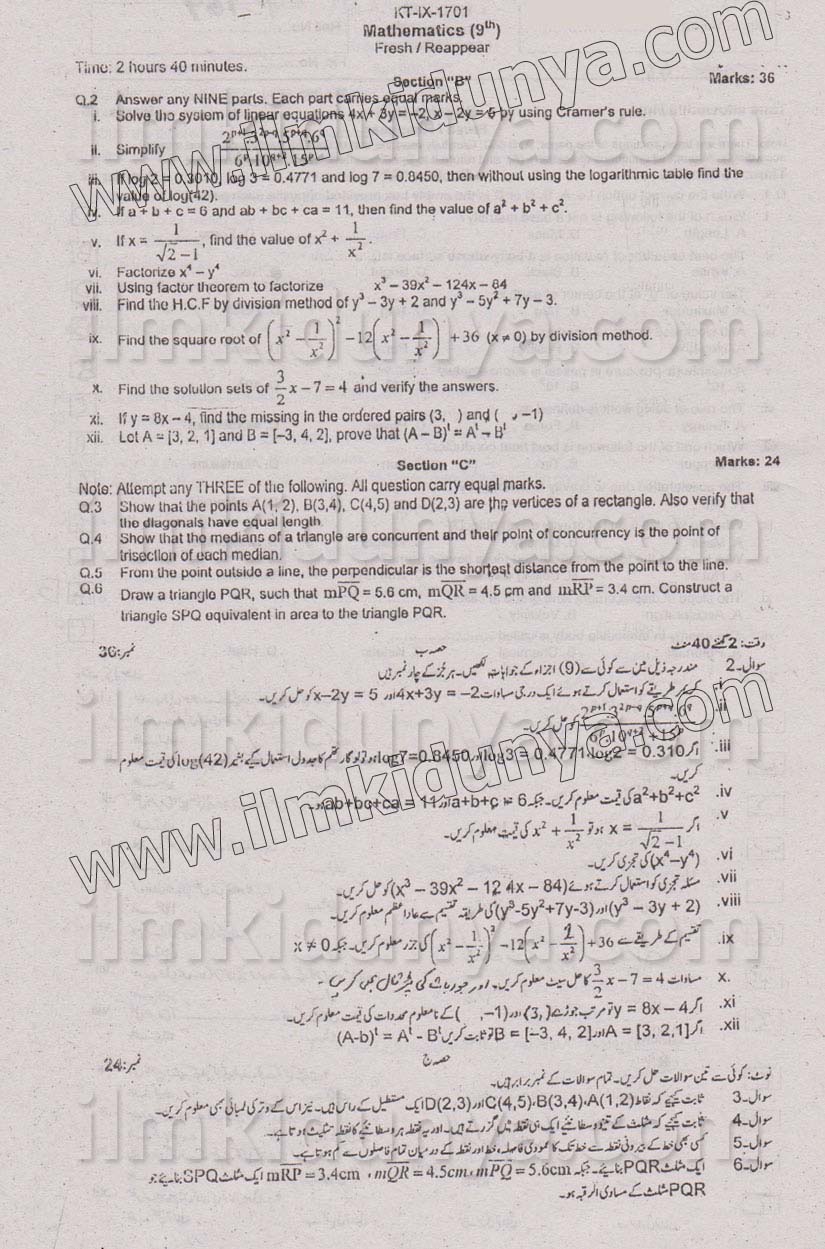 KT-IX-1701
Mathematics (9th)
Fresh / Reappear
Time: 2 hours 40 minutes.
Section "B"
Marks: 36
Q.2 Answer any NINE parts. Each part carries equal marks.
i. Solve the system of linear equations 4x + 3y = –2, x – 2y = 5 by using Cramer's rule.
ii. Simplify
iii. If log 2 = 0.3010, log 3 = 0.4771 and log 7 = 0.8450, then without using the logarithmic table find the
value of log(42).
iv. If a + b + c = 6 and ab + bc + ca = 11, then find the value of a² + b² + c².
v. If x = 1/(√2 – 1), find the value of x² + 1/x².
vi. Factorize x⁴ – y⁴
vii. Using factor theorem to factorize x³ – 39x² – 124x – 84
viii. Find the H.C.F by division method of y³ – 3y + 2 and y³ – 5y² + 7y – 3.
ix. Find the square root of (x² – 1/x²)² –12(x² – 1/x²) + 36 (x ≠ 0) by division method.
x. Find the solution sets of 3/2 x – 7 = 4 and verify the answers.
xi. If y = 8x – 4, find the missing in the ordered pairs (3, ) and ( , –1)
xii. Let A = [3, 2, 1] and B = [–3, 4, 2], prove that (A – B)ᵗ = Aᵗ – Bᵗ
Section "C"
Marks: 24
Note: Attempt any THREE of the following. All question carry equal marks.
Q.3 Show that the points A(1, 2), B(3,4), C(4,5) and D(2,3) are the vertices of a rectangle. Also verify that
the diagonals have equal length.
Q.4 Show that the medians of a triangle are concurrent and their point of concurrency is the point of
trisection of each median.
Q.5 From the point outside a line, the perpendicular is the shortest distance from the point to the line.
Q.6 Draw a triangle PQR, such that mPQ = 5.6 cm, mQR = 4.5 cm and mRP = 3.4 cm. Construct a
triangle SPQ equivalent in area to the triangle PQR.
وقت: 2 گھنٹے 40 منٹ
حصہ ب
نمبر: 36
سوال۔2 مندرجہ ذیل میں سے کوئی سے (9) اجزاء کے جوابات لکھیں۔ ہر جُز کے چار نمبر ہیں
i. کریمر طریقے کو استعمال کرتے ہوئے ایک درجی مساوات 4x+3y = –2 اور x–2y = 5 کو حل کریں۔
ii. کو حل کریں۔
iii. اگر log2 = 0.310، log3 = 0.4771 اور log7=0.8450 ہو تو لوگارتھم کا جدول استعمال کیے بغیر log(42) کی قیمت معلوم
کریں۔
iv. a²+b²+c² کی قیمت معلوم کریں۔ جبکہ a+b+c = 6 اور ab+bc+ca = 11 ہو۔
v. اگر x = 1/(√2 – 1) ہو تو x² + 1/x² کی قیمت معلوم کریں۔
vi. (x⁴–y⁴) کی تجزی کریں۔
vii. مسئلہ تجزی کو استعمال کرتے ہوئے (x³ – 39x² – 124x – 84) کو حل کریں۔
viii. (y³ – 3y + 2) اور (y³-5y²+7y-3) کی طریقہ تقسیم سے عاد اعظم معلوم کریں۔
ix. تقسیم کے طریقے سے (x² – 1/x²)² –12(x² – 1/x²) + 36 کی جزر معلوم کریں۔ جبکہ x ≠ 0
x. مساوات 3/2 x – 7 = 4 کا حل سیٹ معلوم کریں۔ اور
xi. اگر y = 8x – 4 تو مرتب جوڑے (3, ) اور ( , –1) کے نامعلوم محددات کی قیمت معلوم کریں۔
xii. اگر A = [3, 2, 1] اور B = [–3, 4, 2] تو ثابت کریں (A-b)ᵗ = Aᵗ - Bᵗ
حصہ ج
نمبر: 24
نوٹ: کوئی سے تین سوالات حل کریں۔ تمام سوالات کے نمبر برابر ہیں۔
سوال۔3 ثابت کیجیے کہ نقاط A(1,2)، B(3,4)، C(4,5) اور D(2,3) ایک مستطیل کے راس ہیں۔ نیز اس کے وتر کی لمبائی بھی معلوم کریں۔
سوال۔4 ثابت کیجیے کہ مثلث کے تینوں وسطانیے ایک ہی نقطہ میں گزرتے ہیں۔ اور یہ نقطہ ہر وسطانیے کا نقطہ تثلیث ہوتا ہے۔
سوال۔5 کسی بھی خط کے بیرونی نقطہ سے خط تک کا عمودی فاصلہ، خط اور نقطہ کے درمیان تمام فاصلوں سے کم ہوتا ہے۔
سوال۔6 ایک مثلث PQR بنایئے۔ جبکہ mPQ = 5.6cm، mQR = 4.5cm، mRP = 3.4cm ایک مثلث SPQ بنایئے جو
PQR مثلث کے مساوی الرقبہ ہو۔
www.ilmkidunya.com
www.ilmkidunya.com
ilmkidunya.com
ilmkidunya.com
ilmkidunya.com
ilmkidunya.com
ilmkidunya.com
ilmkidunya.com